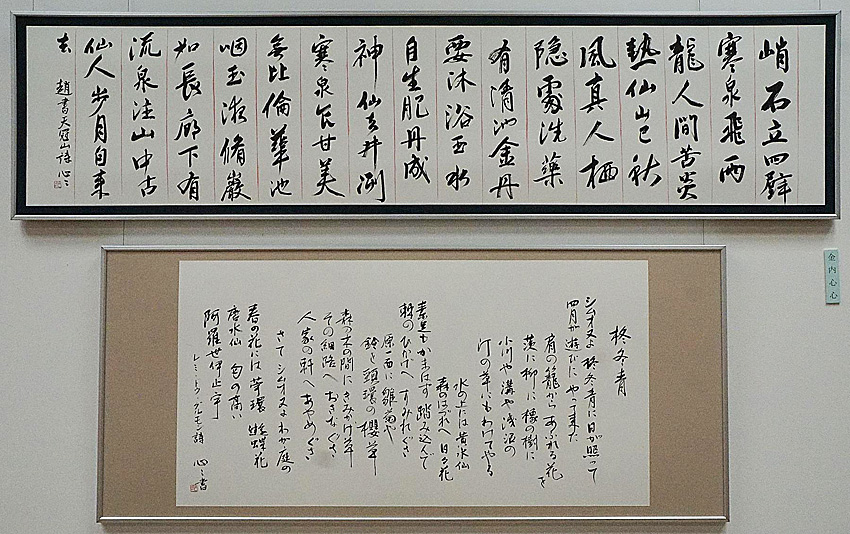 峭石立四壁
寒泉飛两
龍人間苦炎
熱仙山已秋
風真人栖
隐處洗藥
有清池金丹
要沐浴玉水
自生肥丹成
神仙去井洌
寒泉食甘美
無比倫華池
咽玉液脩巖
如長廊下有
流泉注山中古
仙人步月自来
去 趙書天冠山詩 心々
柊冬青
シムオヌよ 柊冬青に日が照つて
四月が遊びに やつて来た
肩の籠から あふれる花を
茨に柳に 橡の樹に
小川や溝や浅沼の
汀の草にもわけてやる
水の上には黄水仙
森のはづれへ 日々花
素足もかまはず 踏み込んで
棘のひかげへ すみれぐさ
原一面に 雛菊や
鈴を頸環の 櫻草
森の木の間に きみかげ草
その細路へ おきなぐさ
人家の軒へ あやめぐさ
さて シムオヌよ わが庭の
春の花には 苧環 遊蝶花
唐水仙 匂の高い
阿羅世伊止宇
レミ・ドゥ・グルモン詩 心々書
金内心心